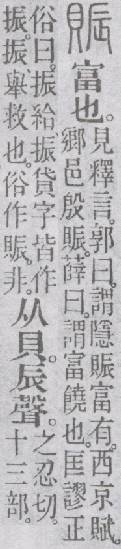 賑
富也。
見釋言。郭曰。謂隱賑富有。西京賦。
鄉邑殷賑。薛曰。謂富饒也。匡謬正
俗曰。振給振貸字皆作
振。振、舉救也。俗作賑。非。
从貝。辰聲。
之忍切。
十三部。